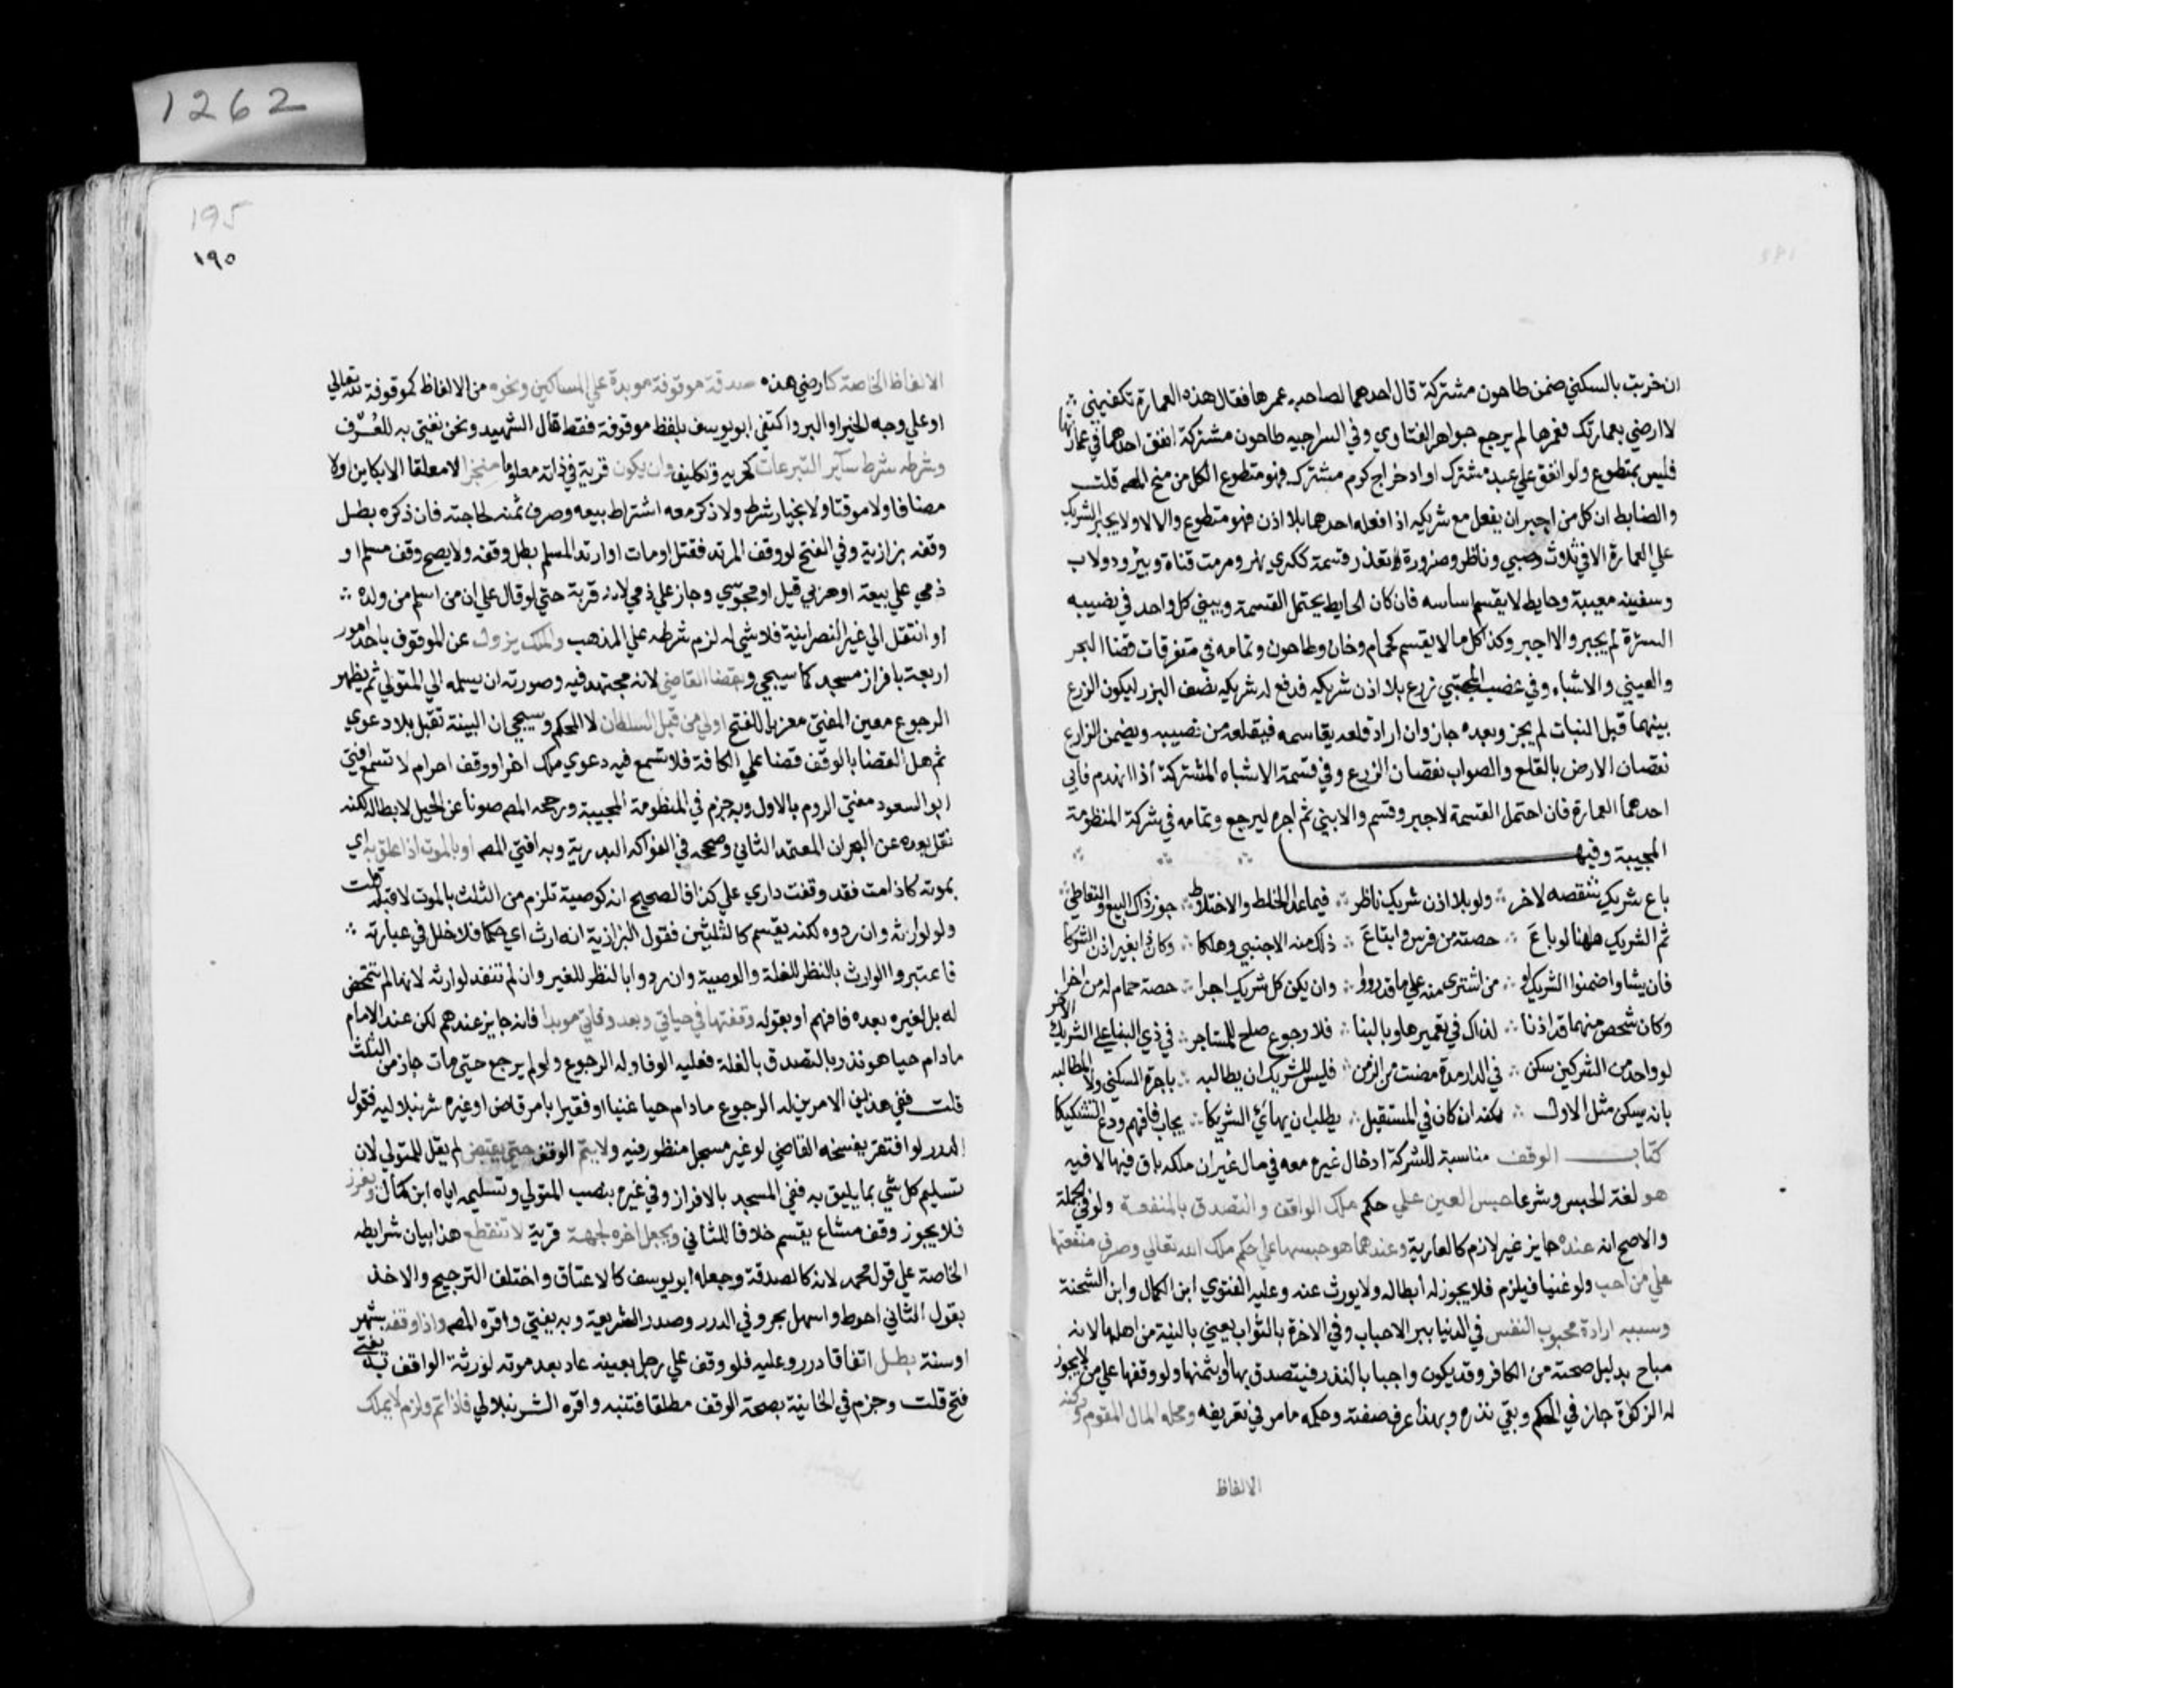 1262
ان خربت بالسكني ضمن طاحون مشتركة قال احدهما لصاحبه عمرها فقال هذه العمارة تكفيني
لا ارضي بعمارتك فعمرها لم يرجع جواهر الفتاوي وفي السراجيه طاحون مشتركة انفق احدهما في عمارتها
فليس بمتطوع ولو انفق علي عبد مشترك او ادي خراج كرم مشترك فهو متطوع الكل من منح المص قلت
والضابط ان كل من اجبر ان يفعل مع شريكه اذا فعله احدهما بلا اذن فهو متطوع والا لا ولا يجبر الشريك
علي العمارة الا في ثلاث وصبي وناظر وضرورة تعذر قسمة ككري نهر ومرمت قناة وبير ودولاب
وسفينه معيبة وحايط لا يقسم اساسه فان كان الحايط يحتمل القسمة ويبني كل واحد في نصيبه
السترة لم يجبر والا اجبر وكذا كل ما لا يقسم كحمام وخان وطاحون وتمامه في متفرقات قضا البحر
والعيني والاشباه وفي غصب المجتبي زرع بلا اذن شريكه فدفع له شريكه نصف البزر ليكون الزرع
بينهما قبل النبات لم يجز وبعده جاز وان اراد قلعه يقاسمه فيقلعه من نصيبه ويضمن الزارع
نقصان الارض بالقلع والصواب نقصان الزرع وفي قسمة الاشباه المشتركة اذا انهدم فابي
احدهما العمارة فان احتمل القسمة لا جبر وقسم والا بني ثم اجره ليرجع وتمامه في شركة المنظومة
المحبية وفيها
باع شريك شقصه لاخر ∴ ولو بلا اذن شريك ناظر ∴ فيما عدا الخلط والاختلاط ∴ جوز ذاك البيع والتعاطي
ثم الشريك ههنا لو باعَ ∴ حصته من فرس وابتاعَ ∴ ذلك منه الاجنبي وهلكا ∴ وكان ذا بغير اذن الشركا
فان يشاوا ضمنوا الشريك او ∴ من اشتري منه علي ما قد رووا ∴ وان يكن كل شريك اجرا ∴ حصة حمام له من اخرا
وكان شخص منهما قد اذنا ∴ لذاك في تعميرها وبالبنا ∴ فلا رجوع صلح للمستاجر ∴ في ذي البنا علي الشريك الاخر
لو واحد من الشركين سكن ∴ في الدار مدة مضت من الزمن ∴ فليس للشريك ان يطالبه ∴ باجرة السكني ولا المطالبه
بانه يسكن مثل الاول ∴ لكنه ان كان في المستقبل ∴ يطلب ان يهائي الشريكا ∴ يجاب فافهم ودع التشكيكا
كتاب الوقف مناسبة للشركة ادخال غيره معه في مال غير ان ملكه باق فيها لا فيه
هو لغة الحبس وشرعا حبس العين علي حكم ملك الواقف والتصدق بالمنفعة ولو في الجملة
والاصح انه عنده جايز غير لازم كالعارية وعندهما هو حبسها علي حكم ملك الله تعالي وصرف منفعتها
علي من احب ولو غنيا فيلزم فلا يجوز له ابطاله ولا يورث عنه وعليه الفتوي ابن الكمال وابن الشحنة
وسببه ارادة محبوب النفس في الدنيا ببر الاحباب وفي الاخرة بالثواب يعني بالنية من اهلها لانه
مباح بدليل صحته من الكافر وقد يكون واجبا بالنذر فيتصدق بها او بثمنها ولو وقفها علي من لا يجوز
له الزكوة جاز في الحكم وبقي نذره وبهذا عرف صفته وحكمه ما مر في تعريفه ومحله المال المتقوم وركنه
الالفاظ
195
١٩٥
الالفاظ الخاصة كارضي هذه صدقة موقوفة موبدة علي المساكين ونحوه من الالفاظ كموقوفة لله تعالي
او علي وجه الخير او البر واكتفي ابو يوسف بلفظ موقوفة فقط قال الشهيد ونحن نفتي به للعُرْف
وشرطه شرط سآير التبرعات كحريه وتكليف وان يكون قربة في ذاته معلوما منجزا لا معلقا الا بكاين ولا
مضافا ولا موقتا ولا بخيار شرط ولا ذكر معه اشتراط بيعه وصرف ثمنه لحاجته فان ذكره بطل
وقفه بزازية وفي الفتح لو وقف المرتد فقتل او مات او ارتد المسلم بطل وقفه ولا يصح وقف مسلم او
ذمي علي بيعة او حربي قيل او مجوسي وجاز علي ذمي لانه قربة حتي لو قال علي ان من اسلم من ولده ∴
او انتقل الي غير النصرانية فلا شي له لزم شرطه علي المذهب والملك يزول عن الموقوف باحد امور
اربعة بافراز مسجد كما سيجي وبقضا القاضي لانه مجتهد فيه وصورته ان يسلمه الي المتولي ثم يظهر
الرجوع معين المفتي معزيا للفتح المولي من قبل السلطان لا المحكم وسيجي ان البينة تقبل بلا دعوي
ثم هل القضا بالوقف قضا علي الكافة فلا تسمع فيه دعوي ملك اخر او وقف اخر ام لا تسمع افتي
ابو السعود مفتي الروم بالاول وبه جزم في المنظومة المحبية ورجحه المص صونا عن الحيل لابطاله لكنه
نقل بعده عن البحر ان المعتمد الثاني وصححه في الفواكه البدرية وبه افتي المص او بالموت اذا علق به اي
بموته كاذا مت فقد وقفت داري علي كذا فالصحيح انه كوصية تلزم من الثلث بالموت لا قبله قلت
ولو لوارثه وان ردوه لكنه يقسم كالثلثين فقول البزازية انه ارث اي حكما فلا خلل في عبارته ∴
فاعتبروا الوارث بالنظر للغلة والوصية وان ردوا بالنظر للغير وان لم تنفذ لوارثه لانها لم تتمحض
له بل لغيره بعده فافهم او بقوله وقفتها في حياتي وبعد وفاتي موبدا فانه جايز عندهم لكن عند الامام
مادام حيا هو نذر بالتصدق بالغلة فعليه الوفا وله الرجوع ولو لم يرجع حتي مات جاز من الثلث
قلت ففي هذين الامرين له الرجوع مادام حيا غنيا او فقيرا بامر قاض او غيره شرنبلاليه فقول
الدرر لو افتقر يفسخه القاضي لو غير مسجل منظور فيه ولا يتم الوقف حتي يقبض لم يقل للمتولي لان
تسليم كل شي بما يليق به ففي المسجد بالافراز وفي غيره بنصب المتولي وتسليمه اياه ابن كمال ويفرز
فلا يجوز وقف مشاع يقسم خلافا للثاني ويجعل اخره لجهة قربة لا تنقطع هذا بيان شرايطه
الخاصة علي قول محمد لانه كالصدقة وجعله ابو يوسف كالاعتاق واختلف الترجيح والاخذ
بقول الثاني احوط واسهل بحر وفي الدرر وصدر الشريعة وبه يفتي واقره المص واذا وقفه بشهر
او سنة بطل اتفاقا درر وعليه فلو وقف علي رجل بعينه عاد بعد موته لورثة الواقف به يفتي
فتح قلت وجزم في الخانية بصحة الوقف مطلقا فتنبه واقره الشرنبلالي فاذا تم ولزم لا يملك